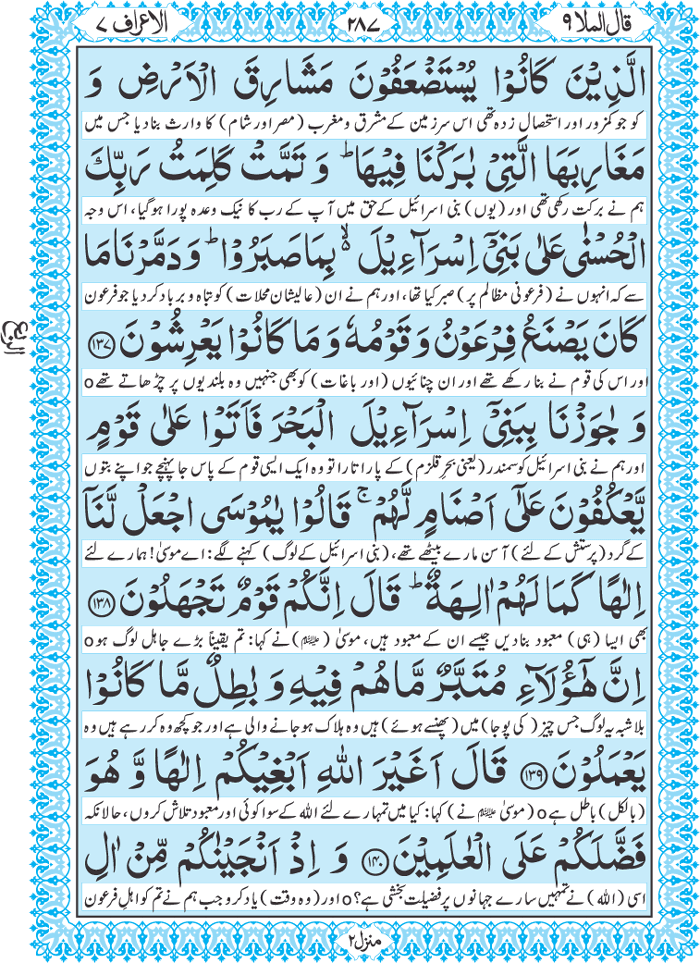 قال الملا ۹
۲۸۷
الاعراف ۷
الَّذِيْنَ كَانُوْا يُسْتَضْعَفُوْنَ مَشَارِقَ الْاَرْضِ وَ
کو جو کمزور اور استحصال زدہ تھی اس سرزمین کے مشرق و مغرب (مصر اور شام) کا وارث بنا دیا جس میں
مَغَارِبَهَا الَّتِيْ بٰرَكْنَا فِيْهَا ؕ وَ تَمَّتْ كَلِمَتُ رَبِّكَ
ہم نے برکت رکھی تھی اور (یوں) بنی اسرائیل کے حق میں آپ کے رب کا نیک وعدہ پورا ہوگیا، اس وجہ
الْحُسْنٰى عَلٰى بَنِيْۤ اِسْرَآءِيْلَ ۙ۬ بِمَا صَبَرُوْا ؕ وَ دَمَّرْنَا مَا
سے کہ انہوں نے (فرعونی مظالم پر) صبر کیا تھا، اور ہم نے ان (عالیشان محلات) کو تباہ و برباد کر دیا جو فرعون
كَانَ يَصْنَعُ فِرْعَوْنُ وَ قَوْمُهٗ وَ مَا كَانُوْا يَعْرِشُوْنَ ﴿۱۳۷﴾
اور اس کی قوم نے بنا رکھے تھے اور ان چنائیوں (اور باغات) کو بھی جنہیں وہ بلندیوں پر چڑھاتے تھے o
الربع
وَ جٰوَزْنَا بِبَنِيْۤ اِسْرَآءِيْلَ الْبَحْرَ فَاَتَوْا عَلٰى قَوْمٍ
اور ہم نے بنی اسرائیل کو سمندر (یعنی بحرِ قلزم) کے پار اتارا تو وہ ایک ایسی قوم کے پاس جا پہنچے جو اپنے بتوں
يَّعْكُفُوْنَ عَلٰۤى اَصْنَامٍ لَّهُمْ ۚ قَالُوْا يٰمُوْسَى اجْعَلْ لَّنَاۤ
کے گرد (پرستش کے لئے) آسن مارے بیٹھے تھے، (بنی اسرائیل کے لوگ) کہنے لگے: اے موسٰی! ہمارے لئے
اِلٰهًا كَمَا لَهُمْ اٰلِهَةٌ ؕ قَالَ اِنَّكُمْ قَوْمٌ تَجْهَلُوْنَ ﴿۱۳۸﴾
بھی ایسا (ہی) معبود بنا دیں جیسے ان کے معبود ہیں، موسٰی (علیہ السلام) نے کہا: تم یقیناً بڑے جاہل لوگ ہو o
اِنَّ هٰۤؤُلَآءِ مُتَبَّرٌ مَّا هُمْ فِيْهِ وَ بٰطِلٌ مَّا كَانُوْا
بلاشبہ یہ لوگ جس چیز (کی پوجا) میں (پھنسے ہوئے) ہیں وہ ہلاک ہوجانے والی ہے اور جو کچھ وہ کر رہے ہیں وہ
يَعْمَلُوْنَ ﴿۱۳۹﴾ قَالَ اَغَيْرَ اللّٰهِ اَبْغِيْكُمْ اِلٰهًا وَّ هُوَ
(بالکل) باطل ہے o (موسٰی علیہ السلام نے) کہا: کیا میں تمہارے لئے اللہ کے سوا کوئی اور معبود تلاش کروں، حالانکہ
فَضَّلَكُمْ عَلَى الْعٰلَمِيْنَ ﴿۱۴۰﴾ وَ اِذْ اَنْجَيْنٰكُمْ مِّنْ اٰلِ
اسی (اللہ) نے تمہیں سارے جہانوں پر فضیلت بخشی ہے؟ o اور (وہ وقت) یاد کرو جب ہم نے تم کو اہلِ فرعون
منزل ۲